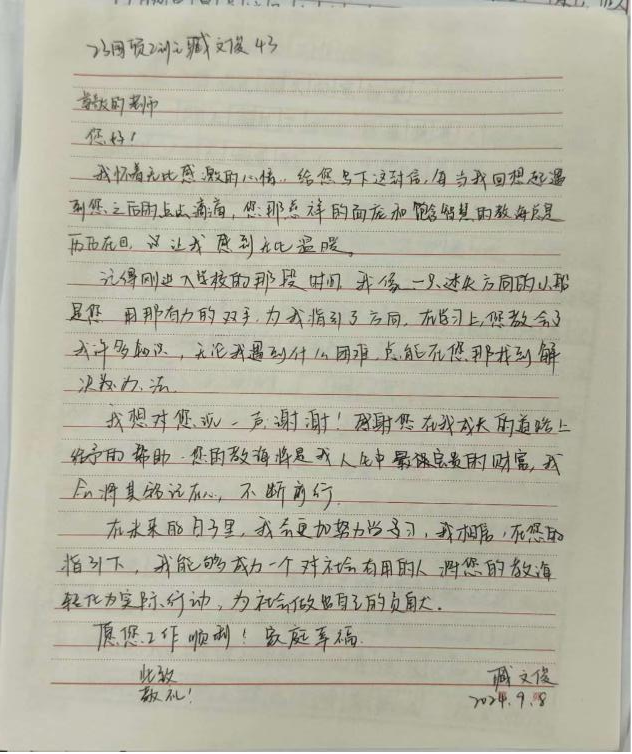 臧文俊 43
尊敬的老师
您好！
我怀着无比感激的心情，给您写下这封信，每当我回想起遇
到您之后的点点滴滴，您那慈祥的面庞和饱含智慧的教诲总是
历历在目，让我感到无比温暖。
记得刚进入学校的那段时间，我像一只迷失方向的小船
是您用那有力的双手，为我指引了方向，在学习上，您教会了
我许多知识，无论我遇到什么困难，总能在您那找到解
决办法。
我想对您说一声谢谢！感谢您在我成长的道路上
给予的帮助，您的教诲将是我人生中最宝贵的财富，我
会将其铭记在心，不断前行
在未来的日子里，我会更加努力学习，我相信，在您的
指引下，我能够成为一个对社会有用的人，将您的教诲
转化为实际行动，为社会做出自己的贡献。
愿您工作顺利！家庭幸福
此致
敬礼！
臧文俊
2024.9.8